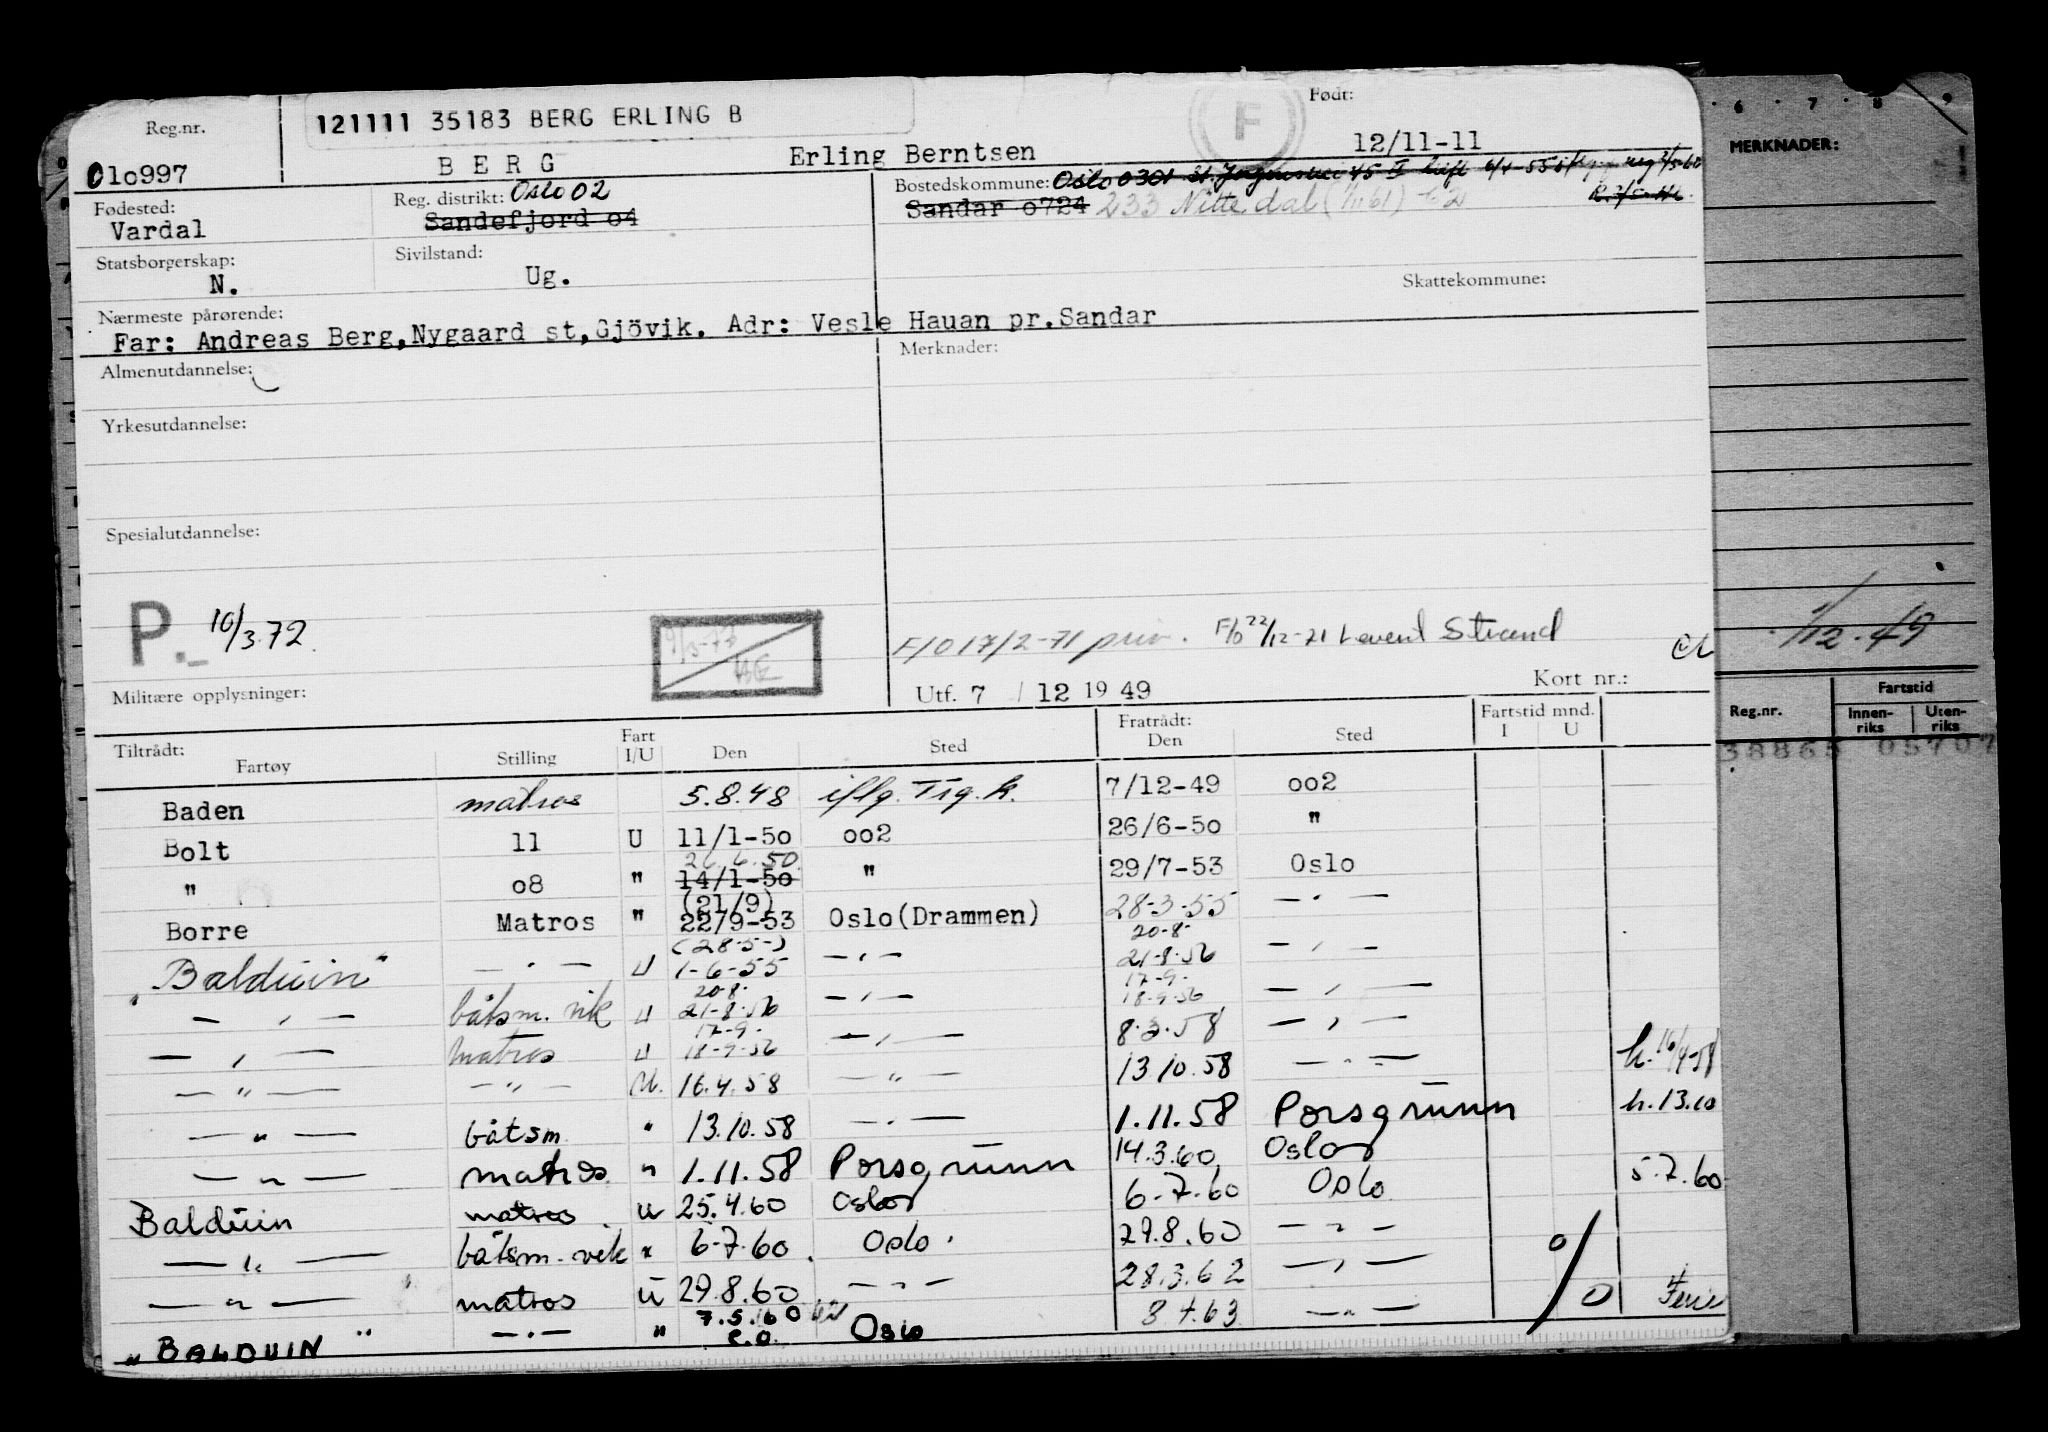 Reg.nr. 121111 35183 BERG ERLING B F Født:
0lo997 BERG Erling Berntsen 12/11-11
Fødested: Reg. distrikt: Oslo 02 Bostedskommune: Oslo 0301
Vardal Sandefjord o4 Sandar o724 233 Nittedal
Statsborgerskap: Sivilstand:
N. Ug. Skattekommune:
Nærmeste pårørende:
Far: Andreas Berg,Nygaard st,Gjövik. Adr: Vesle Hauan pr.Sandar
Almenutdannelse: Merknader:
Yrkesutdannelse:
Spesialutdannelse:
P. 10/3.72. F/O 17/2-71 priv. F/O 22/12-71 Levert Strand
Militære opplysninger: Utf. 7 / 12 19 49 Kort nr.:
Tiltrådt: Fratrådt: Fartstid mnd.
Fartøy Stilling Fart I/U Den Sted Den Sted I U
Baden matros 5.8.48 iflg. Trg.k. 7/12-49 oo2
Bolt 11 U 11/1-5o oo2 26/6-5o "
" o8 " 26.6.50 14/1-5o " 29/7-53 Oslo
Borre Matros " (21/9) 22/9-53 Oslo(Drammen) 28-3-55 — " —
"Balduin" — " — U (28-5-) 1-6-55 — " — 20-8- 21-8-56 — " —
— " — båtsm. vik U 20-8- 21-8-56 — " — 17-9- 18-9-56 — " —
— " — matros U 17-9- 18-9-56 — " — 8.3.58 — " —
— " — — " — U. 16.4.58 — " — 13.10.58 — " — h. 16/4-58
— " — båtsm " 13.10.58 — " — 1.11.58 Porsgrunn h.13.10
— " — matros " 1.11.58 Porsgrunn 14.3.60 Oslo
Balduin matros U 25.4.60 Oslo 6-7-60 Oslo 5.7.60
— " — båtsm. vik " 6-7-60 Oslo 29.8.60 — " —
— " — matros U 29.8.60 — " — 28.3.62 — " — Ferie
"BALDUIN" — " — " 7.5.60 62 Oslo 8.4.63 — " —
6 7 8 9
MERKNADER:
1/12-49
Reg.nr. Fartstid
Innenriks Utenriks
38865 05707